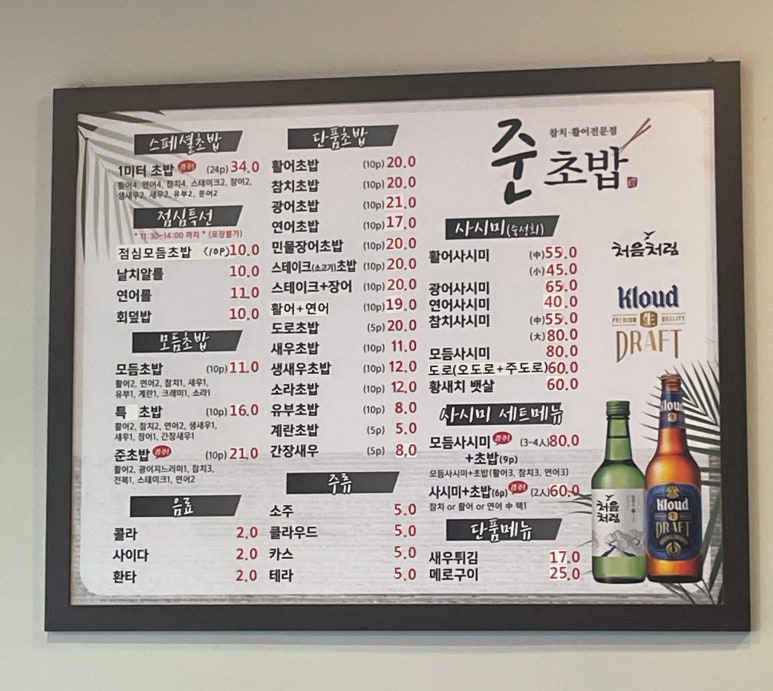 스페셜초밥
1미터 초밥 (24p) 34.0
활어4, 연어4, 참치4, 스테이크2, 장어2,
생새우2, 새우2, 유부2, 문어2
점심특선
* 11:30~14:00 까지 * (포장불가)
점심모듬초밥 (10P) 10.0
날치알롤 10.0
연어롤 11.0
회덮밥 10.0
모듬초밥
모듬초밥 (10p) 11.0
활어2, 연어2, 참치1, 새우1,
유부1, 계란1, 크래미1, 소라1
특 초밥 (10p) 16.0
활어2, 참치2, 연어2, 생새우1,
새우1, 장어1, 간장새우1
준초밥 (10p) 21.0
활어2, 광어지느러미1, 참치3,
전복1, 스테이크1, 연어2
음료
콜라 2.0
사이다 2.0
환타 2.0
단품초밥
활어초밥 (10p) 20.0
참치초밥 (10p) 20.0
광어초밥 (10p) 21.0
연어초밥 (10p) 17.0
민물장어초밥 (10p) 20.0
스테이크(소고기)초밥 (10p) 20.0
스테이크+장어 (10p) 20.0
활어+연어 (10p) 19.0
도로초밥 (5p) 20.0
새우초밥 (10p) 11.0
생새우초밥 (10p) 12.0
소라초밥 (10p) 12.0
유부초밥 (10p) 8.0
계란초밥 (5p) 5.0
간장새우 (5p) 8.0
주류
소주 5.0
클라우드 5.0
카스 5.0
테라 5.0
참치·활어전문점
준초밥
사시미(숙성회)
활어사시미 (中) 55.0
(小) 45.0
광어사시미 65.0
연어사시미 40.0
참치사시미 (中) 55.0
(大) 80.0
모듬사시미 80.0
도로(오도로+주도로) 60.0
황새치 뱃살 60.0
사시미 세트메뉴
모듬사시미 (3~4人) 80.0
+초밥(9p)
모듬사시미+초밥(활어3, 참치3, 연어3)
사시미+초밥(6p) (2人) 60.0
참치 or 활어 or 연어 中 택1
단품메뉴
새우튀김 17.0
메로구이 25.0
처음처럼
Kloud
PREMIUM 生 QUALITY
DRAFT
처음
처럼
Kloud
Kloud
生
DRAFT